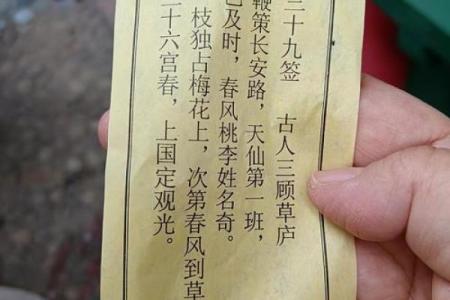 十九签 古人三顾草庐
鞭策长安路，天仙第一班，
已及时，春风桃李姓名奇。
枝独占梅花上，次第春风到草
十六宫春，上国定观光。